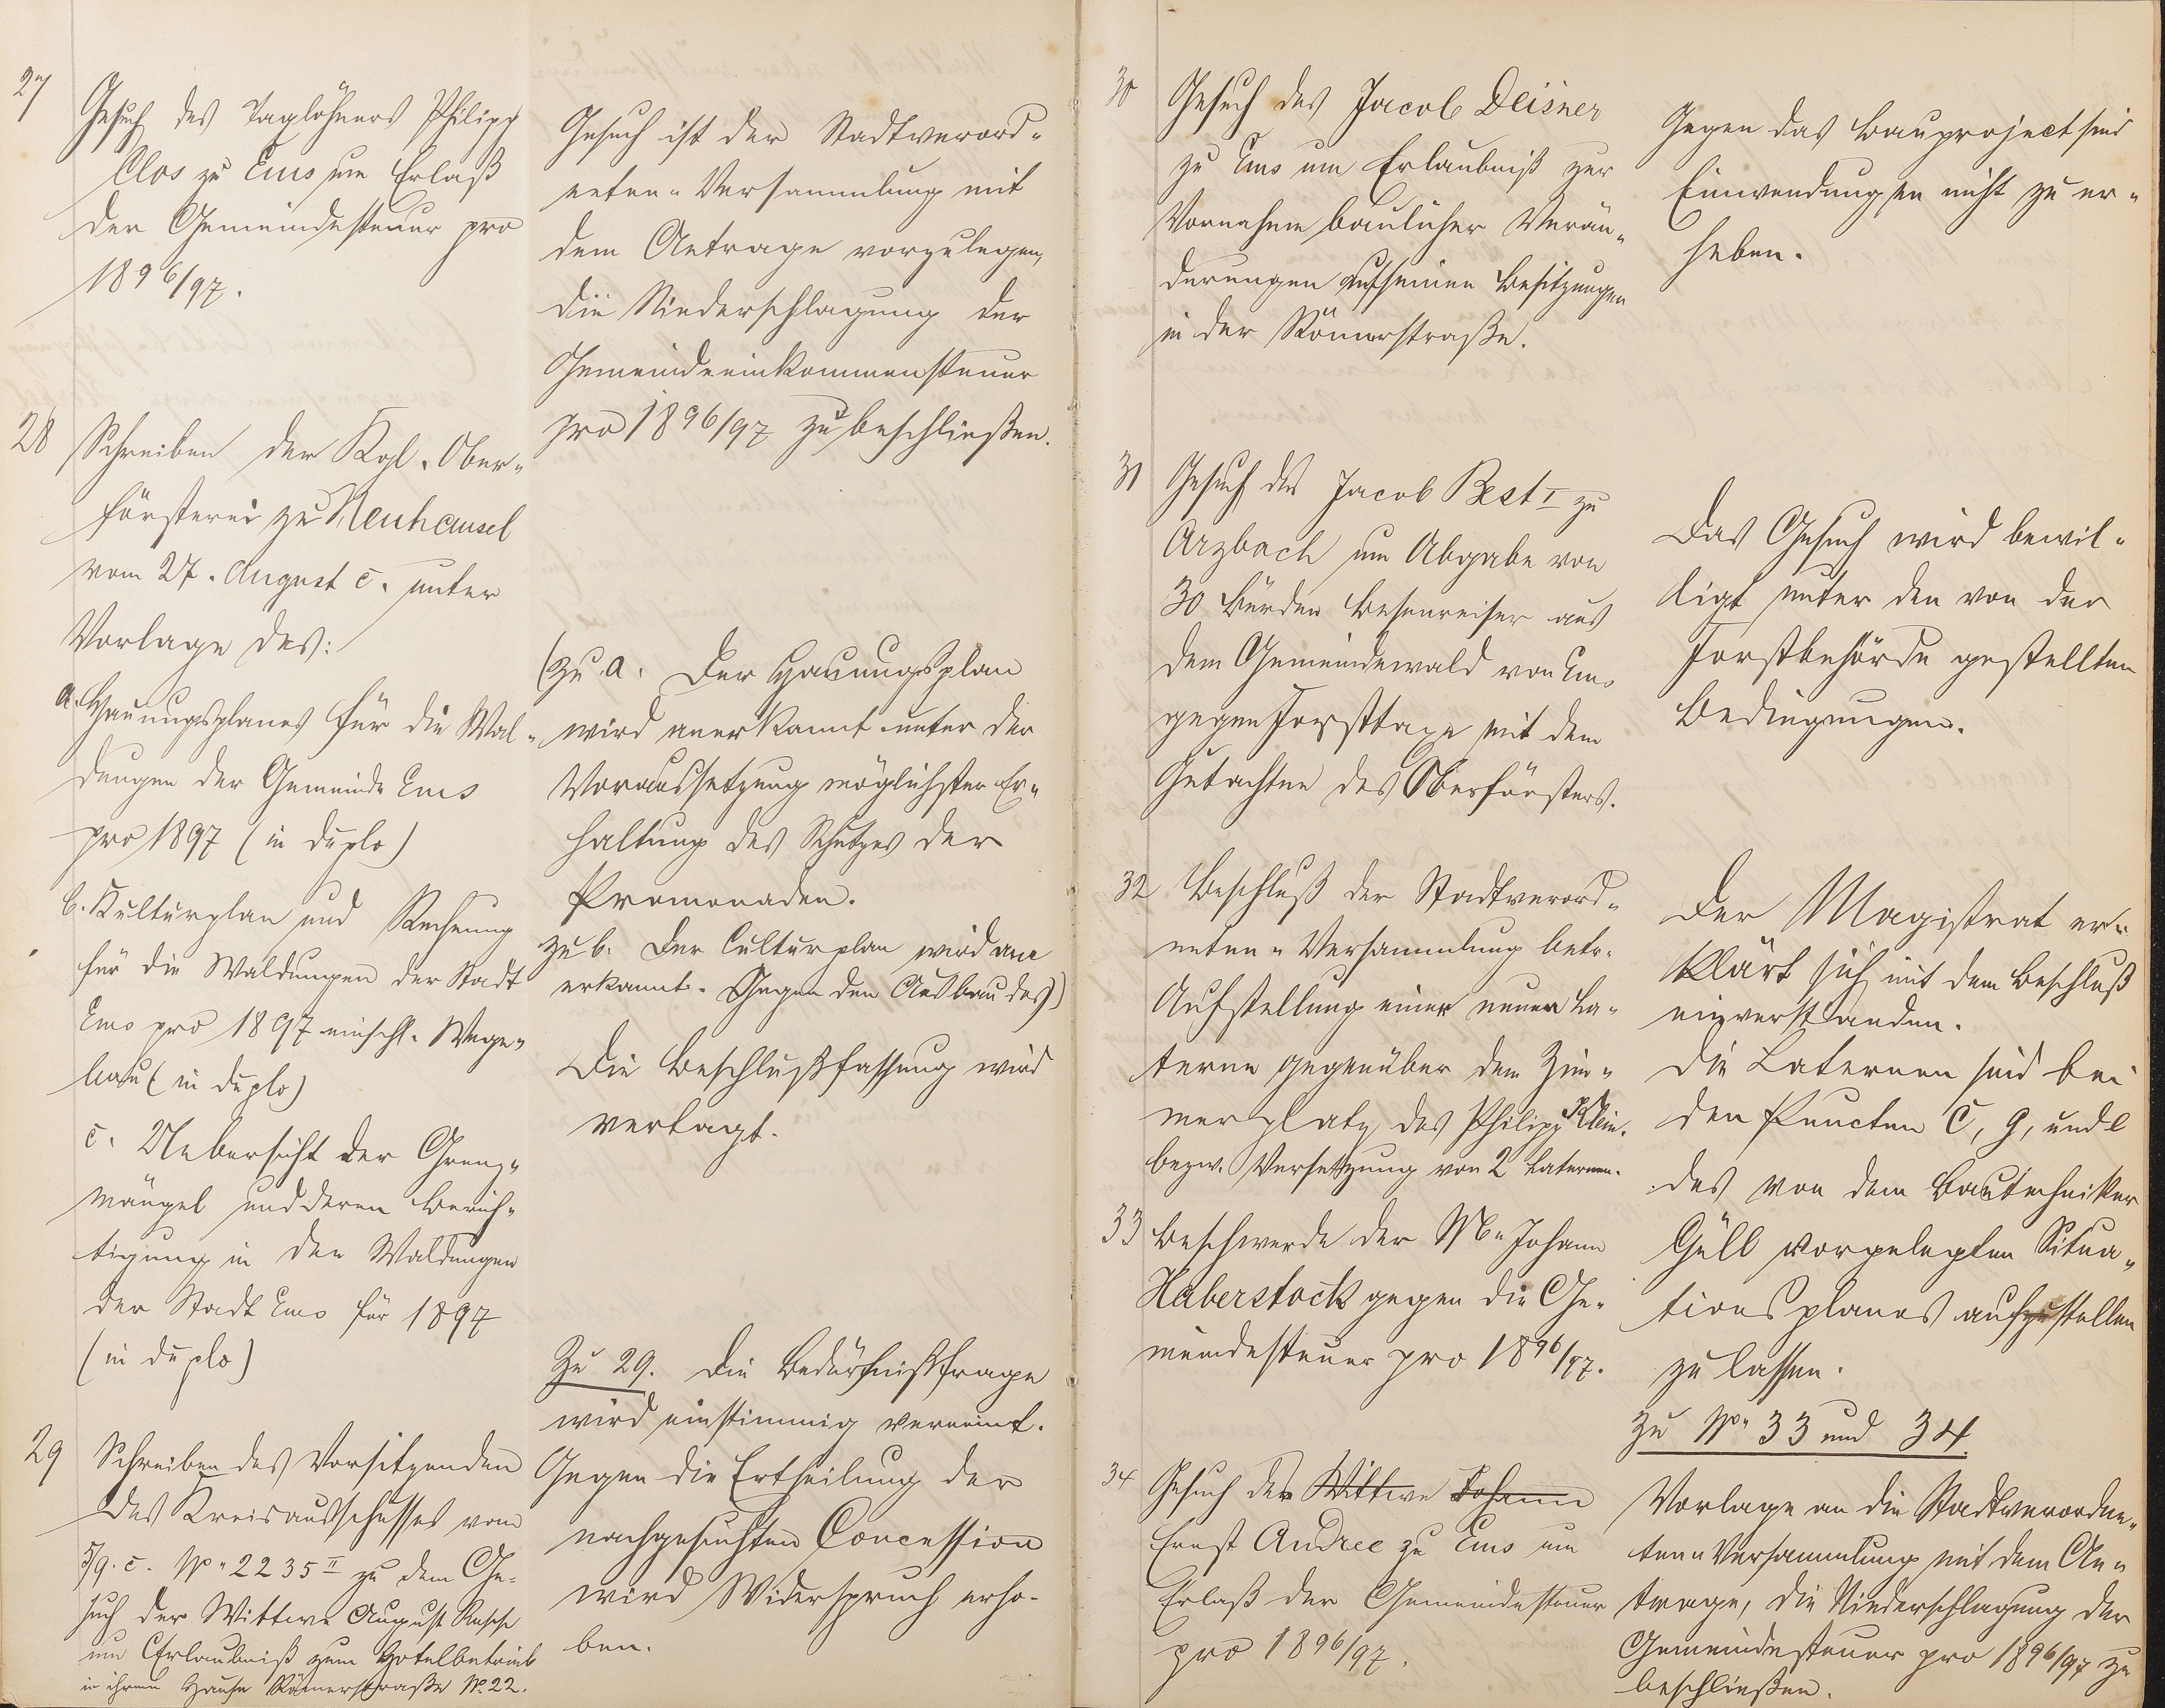 27
Gesuch des Taglöhners Philipp
Clos zu Ems um Erlaß
der Gemeindesteuer pro
1896/97.
Gesuch ist der Stadtverord-
neten-Versammlung mit
dem Antrage vorzulegen,
die Niederschlagung der
Gemeindeeinkommensteuer
pro 1896/97 zu beschließen.
28
Schreiben der Kgl. Ober-
försterei zu Neuhäusel
vom 27. August c. unter
Vorlage des:
a. Hauungsplanes für die Wal-
dungen der Gemeinde Ems
pro 1897 (in duplo)
b. Kulturplan und Rechnung
für die Waldungen der Stadt
Ems pro 1897 einschl. Wege-
bau (in duplo)
c. Uebersicht der Grenz-
mängel und deren Berich-
tigung in den Waldungen
der Stadt Ems für 1897
(in duplo)
(zu a. Der Hauungsplan
wird anerkannt unter der
Voraussetzung möglichster Er-
haltung des Schutzes der
Promenaden.
zu b. Der Culturplan wird an-
erkannt. Gegen den Ausbau des)
Die Beschlußfassung wird
vertagt.
29
Schreiben des Vorsitzenden
des Kreisausschusses vom
5/9. c. No. 2235 II zu dem Ge-
such der Wittwe August
um Erlaubniß zum Hotelbetrieb
in ihrem Hause Römerstraße No. 22.
Zu 29. Die Bedürfnißfrage
wird einstimmig verneint.
Gegen die Ertheilung der
nachgesuchten Concession
wird Widerspruch erho-
ben.
30
Gesuch des Jacob Deisner
zu Ems um Erlaubniß zur
Vornahme baulicher Verän-
derungen auf seinen Besitzungen
in der Römerstraße.
Gegen das Bauproject sind
Einwendungen nicht zu er-
heben.
31
Gesuch des Jacob Best I zu
Arzbach um Abgabe von
30 Bürden Besenreiser aus
dem Gemeindewald von Ems
gegen Forsttaxe mit dem
Gutachten des Oberförsters.
Das Gesuch wird bewil-
ligt unter den von der
Forstbehörde gestellten
Bedingungen.
32
Beschluß der Stadtverord-
neten-Versammlung betr.
Aufstellung einer neuen La-
terne gegenüber dem Zim-
merplatz des Philipp Klein.
bezw. Versetzung von 2 Laternen.
Der Magistrat er-
klärt sich mit dem Beschluß
einverstanden.
Die Laternen sind bei
den Puncten C, g, und l
des von dem Bautechniker
Güll vorgelegten Situa-
tionsplanes aufzustellen
zu lassen.
33
Beschwerde der M. Johann
Haberstock gegen die Ge-
meindesteuer pro 1896/97.
34
Gesuch des Wittwe Johann
Ernst Andree zu Ems um
Erlaß der Gemeindesteuer
pro 1896/97.
Zu No. 33 und 34.
Vorlage an die Stadtverordne-
ten-Versammlung mit dem An-
trage, die Niederschlagung der
Gemeindesteuer pro 1896/97 zu
beschließen.